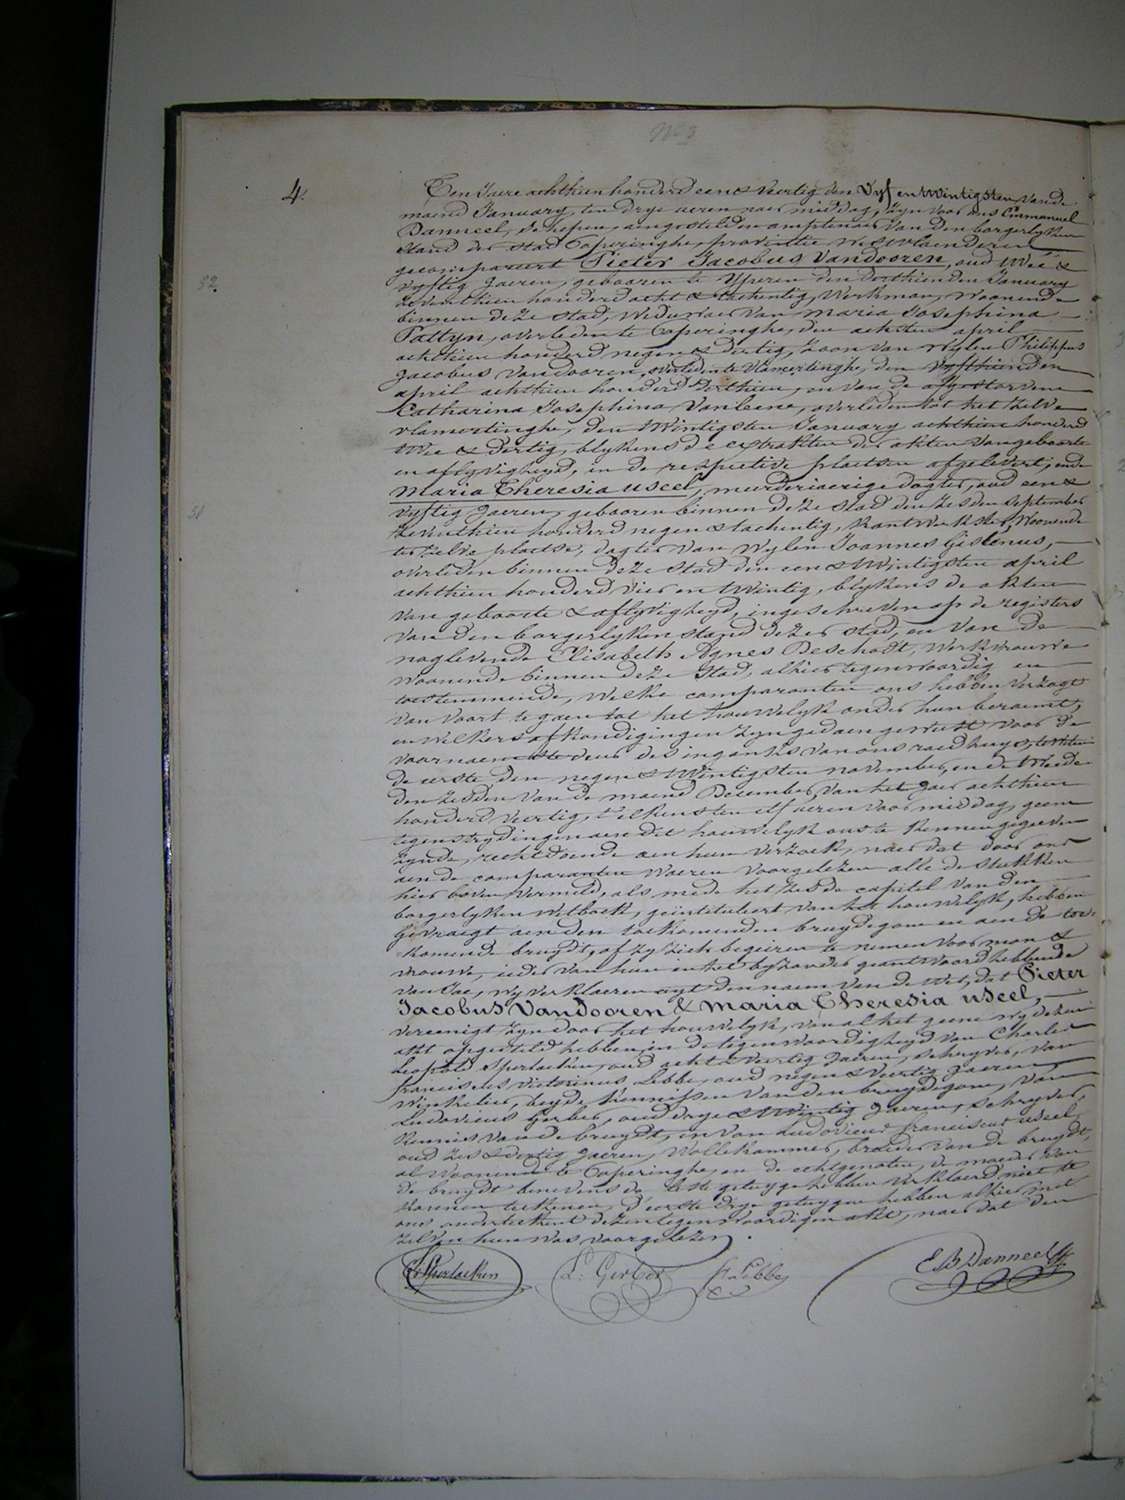 N° 3
4.
Ten Jaere achthien honderd een & veertig den Vyf en twintigsten van de
maend January, ten drye ueren naer middag, zyn voor ons Emmanuel
Danneel, schepen, aengestelden amptenaer van den borgerlyken
stand der stad Poperinghe, provintie westvlaenderen
gecompareert Pieter Jacobus Vandooren, oud twee &
52
vyftig jaeren, gebooren te Yperen den derthienden January
zeventhien honderd acht & tachentig, werkman, woonende
binnen deze stad, weduwaer van Maria Josephina
Pattyn, overleden te Poperinghe, den achsten april
achthien honderd negen & dertig, zoon van wylen Philippus
Jacobus Vandooren, overleden te Vlamertinghe, den vyfthienden
april achthien honderd derthien, en van de afgestorvene
Catharina Josephina Vanleene, overleden tot het zelve
vlamertinghe, den twintigsten January achthien honderd
twee & dertig, blykens de extrakten der akten van geboorte
en aflyvigheyd, in de respective plaetsen afgelevert; ende
Maria Theresia useel, meerderjaerige dogter, oud een &
51
vyftig jaeren, gebooren binnen deze stad den zesden september
zeventhien honderd negen & tachentig, kantwerkster, woonende
ter zelve plaetse, dogter van wylen Joannes Gislenus,
overleden binnen deze stad den een & twintigsten april
achthien honderd vier en twintig, blykens de akten
van geboorte & aflyvigheyd, ingeschreven op de registers
van den borgerlyken stand dezer stad, en van de
naglevende Elisabeth Agnes Deschodt, werkvrouwe
woonende binnen deze stad, alhier tegenwoordig en
toestemmende, welke comparanten ons hebben verzogt
van voort te gaen tot het houwelyk onder hun beraemt,
en welkers afkondigingen zyn gedaen geweest voor de
voornaemste deur des ingankts van ons raedhuys, te weten
de eerste den negen & twintigsten november, en de tweede
den zesden van de maend December, van het jaer achthien
honderd veertig, t'elkens ten elf ueren voor middag, geene
tegenstrydingen aen dit houwelyk ons te kennen gegeven
zynde, rechtdoende aen hun verzoek, naer dat door ons
aen de comparanten waeren voorgelezen alle de stukken
hier boven vermeld, als mede het zesde capitel van den
borgerlyken wetboek, geintituleert van het houwelyk, hebben
gevraegt aen den toekomenden bruydegom en aen de toe-
komende bruydt, of zy zich begeiren te nemen voor man &
vrouwe, ieder van hun en het byzonder geantwoord hebbende
van Jae, wy verklaeren uyt den naem van de wet, dat Pieter
Jacobus Vandooren & Maria Theresia useel,
vereenigt zyn door het houwelyk, van al het geene wy dezen
akt opgesteld hebben, in de tegenwoordigheyd van Charles
Leopold Sperlaeken, oud acht & veertig jaeren, schryver, van
franciscus victorinus Lebbe, oud negen & veertig jaeren,
winkelier, beyde kennissen van den bruydegom, van
Ludovicus Gerber, oud drye & twintig jaeren, schryver,
kennis van de bruydt, en van Ludovicus franciscus useel,
oud zes & dertig jaeren, wollekammer, broeder van de bruydt,
al woonende te Poperinghe, en de echtgenoten, de moeder van
de bruydt benevens de leste getuyge hebben verklaerd niet te
konnen teekenen, d'eerste drye getuygen hebben alhier met
ons onderteekent dezen tegenwoordigen akt, naer dat den
zelven hun was voorgelezen.
Sperlaeken L: Gerber f Lebbe E B Danneel